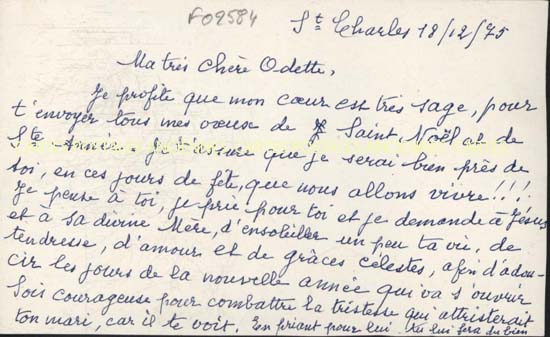 F09584
St Charles 18/12/75
Ma très chère Odette,
Je profite que mon cœur est très sage, pour
t'envoyer tous mes vœux de Saint Noël et de
Ste Année. Je t'assure que je serai bien près de
toi, en ces jours de fête, que nous allons vivre!!!
Je pense à toi, je prie pour toi et je demande à Jésus
et à sa divine Mère, d'ensoleiller un peu ta vie, de
tendresse, d'amour et de grâces célestes, afin d'adou-
cir les jours de la nouvelle année qui va s'ouvrir
Sois courageuse pour combattre la tristesse qui attristerait
ton mari, car il te voit. En priant pour lui tu lui fera du bien